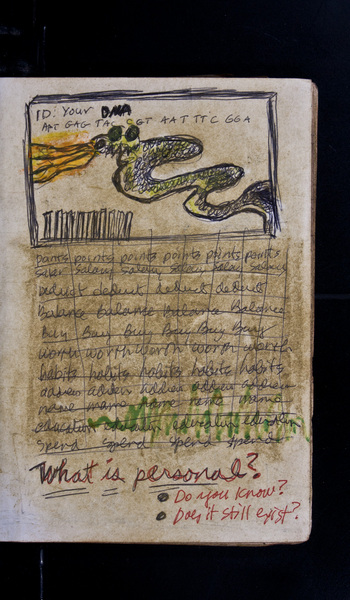 ID: Your DNA
AAT GAG TAC GT AAT TTC GGA
points points points points points points
salary salary salary salary salary
deduct deduct deduct deduct deduct
Balance balance balance Balance Balance
Buy Buy Buy Buy Buy Buy
worth worth worth worth worth
habits habits habits habits habits
address address address address address
name name name name name
education education education education
Spend Spend Spend Spend
What is personal?
Do you know?
Does it still exist?